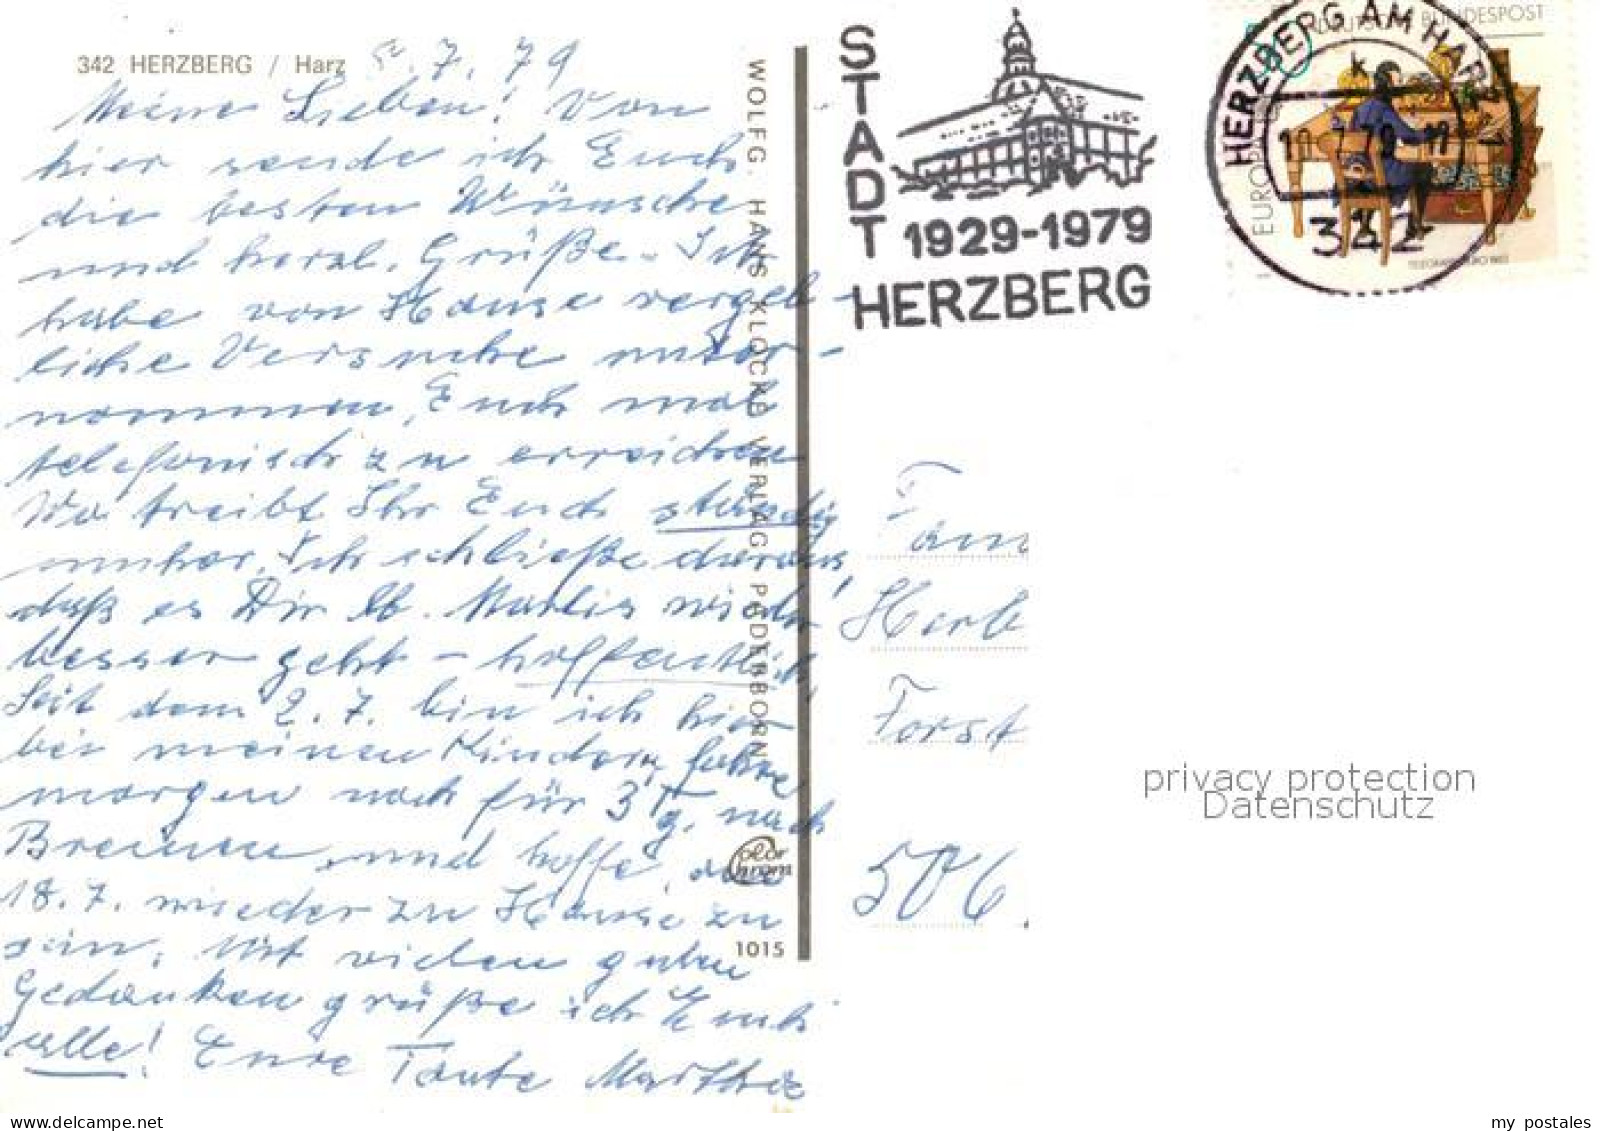 342 HERZBERG / Harz 8. 7. 79
Meine Lieben! Von
hier sende ich Euch
die besten Wünsche
und herzl. Grüße. Ich
habe von Hause vergeb-
liche Versuche unter-
nommen, Euch mal
telefonisch zu erreichen
Wo treibt Ihr Euch ständig
umher. Ich schließe daraus,
daß es Dir lb. Marlis wieder
besser geht - hoffentlich!
Seit dem 2. 7. bin ich hier
bei meinen Kindern, fahre
morgen noch für 3 Tg. nach
Bremen und hoffe, am
18. 7. wieder zu Hause zu
sein. Mit vielen guten
Gedanken grüße ich Euch
alle! Eure Tante Marthe
WOLFG. HANS KLOCKE VERLAG PADERBORN
Color
chrom
1015
STADT
1929-1979
HERZBERG
DEUTSCHE BUNDESPOST
EUROPA
HERZBERG AM HARZ
342
Fam
Herb
Forst
506
privacy protection
Datenschutz
delcampe.net
my_postales